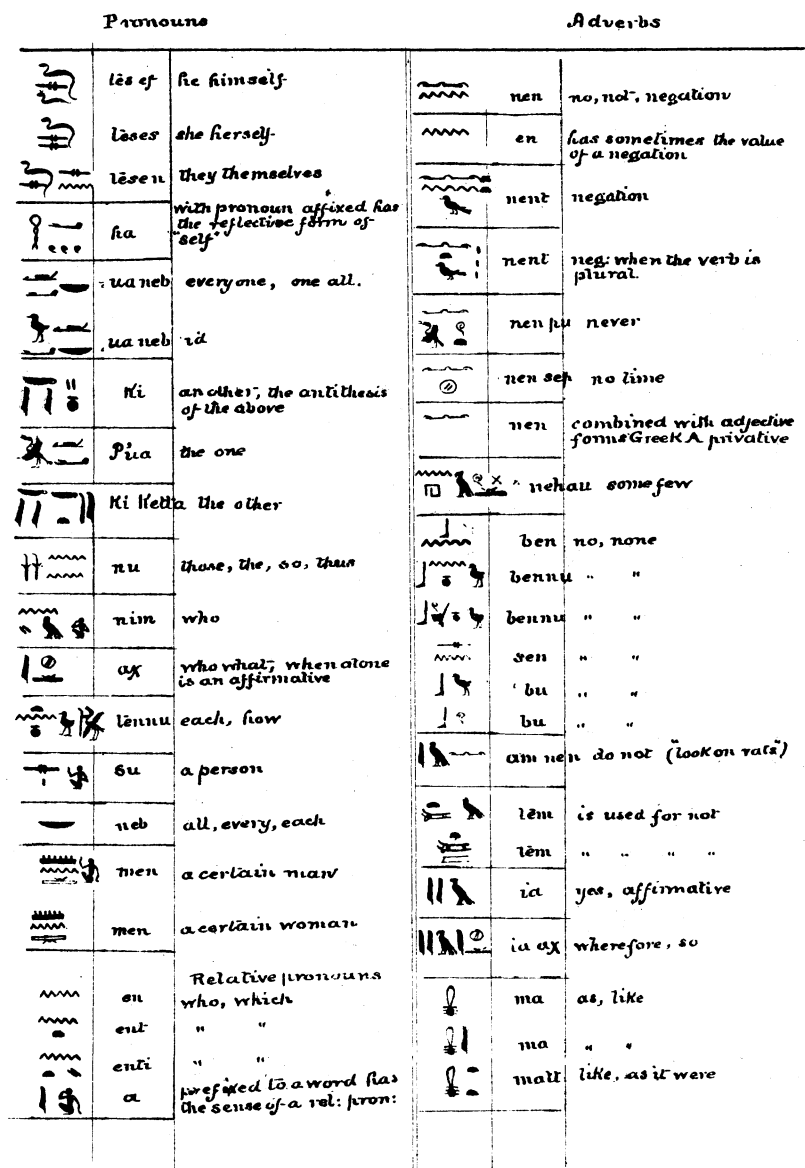 Pronouns
tēs ef he himself
tēses she herself
tēsen they themselves
ha with pronoun affixed has
the reflective form of
"self"
ua neb everyone, one all.
ua neb id
Ki another, the antithesis
of the above
P'ua the one
Ki Ketta the other
nu those, the, so, thus
nim who
ax who what, when alone
is an affirmative
tēnnu each, how
su a person
neb all, every, each
men a certain man
men a certain woman
Relative pronouns
en who, which
ent " "
enti " "
a prefixed to a word has
the sense of a rel: pron:
Adverbs
nen no, not, negation
en has sometimes the value
of a negation
nent negation
nent neg: when the verb is
plural.
nen pu never
nen sep no time
nen combined with adjective
forms Greek A privative
nehau some few
ben no, none
bennu " "
bennu " "
sen " "
bu " "
bu " "
am nen do not ("look on rats")
tēm is used for not
tēm " " " "
ia yes, affirmative
ia ax wherefore, so
ma as, like
ma " "
matt like, as it were